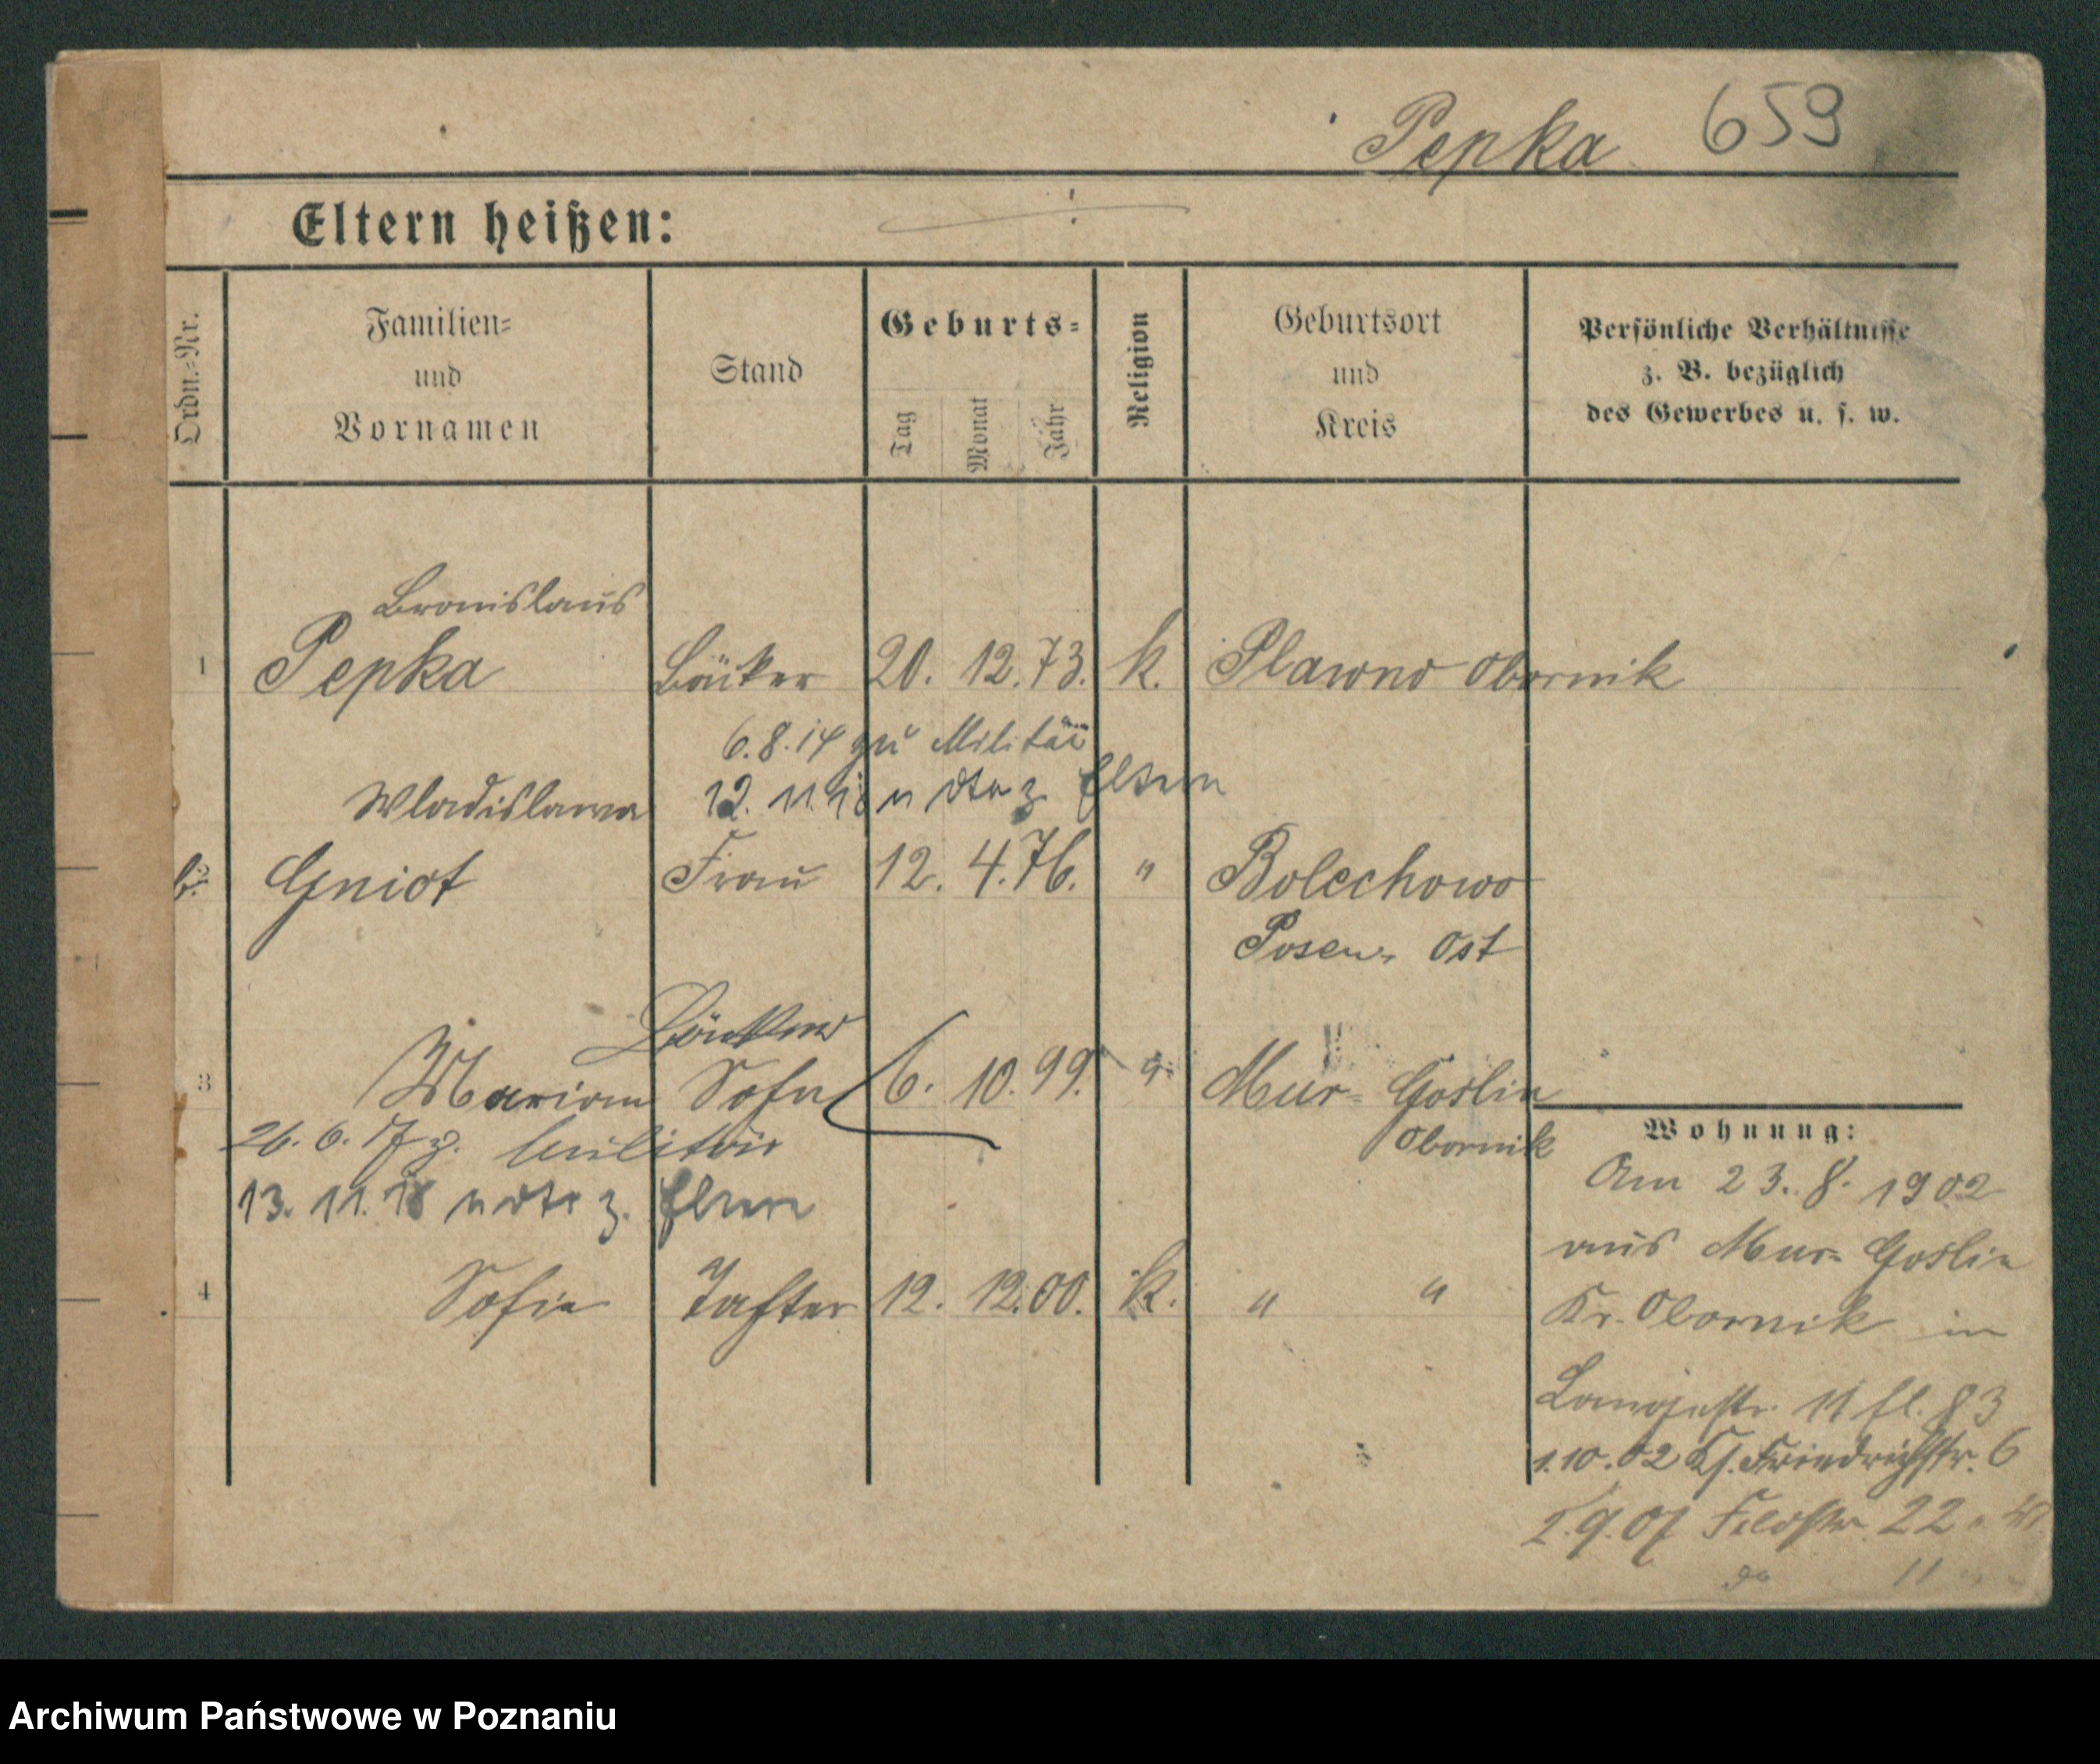 Pepka 659
Eltern heißen:
Ordn.=Nr.
Familien=
und
Vornamen
Stand
Geburts=
Tag
Monat
Jahr
Religion
Geburtsort
und
Kreis
Persönliche Verhältnisse
z. B. bezüglich
des Gewerbes u. s. w.
Bronislaus
1 Pepka Bäcker 20. 12. 73. k. Plawno Obornik
6.8.14 zu Militär
Wladislawa 12. 11. 18 z. Eltern
Gniot Frau 12. 4. 76. " Bolechowo
Posen, Ost
3 Marian Sohn 6. 10. 99. Mur= Goslin
Obornik
26. 6. 17 z. Militär
13. 11. 18 z. Eltern
4 Sofie Tochter 12. 12. 00. k. " "
Wohnung:
Am 23. 8. 1902
aus Mur= Goslin
Kr. Obornik in
Langestr. 11 83
1.10.02 Friedrichstr. 6
2.9.07 Feldstr. 22
Archiwum Państwowe w Poznaniu